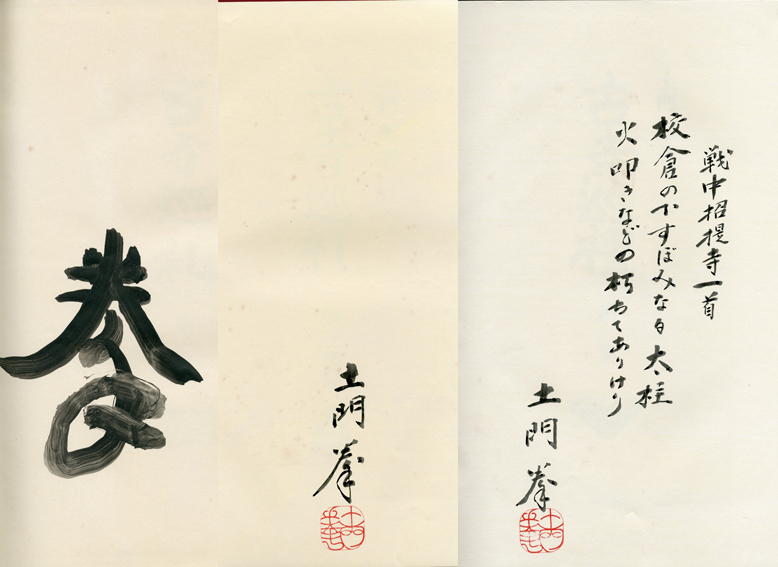 拳
土門拳
戦中招提寺一首
校倉の下すぼみなる太柱
火叩きなどの朽ちてありけり
土門拳